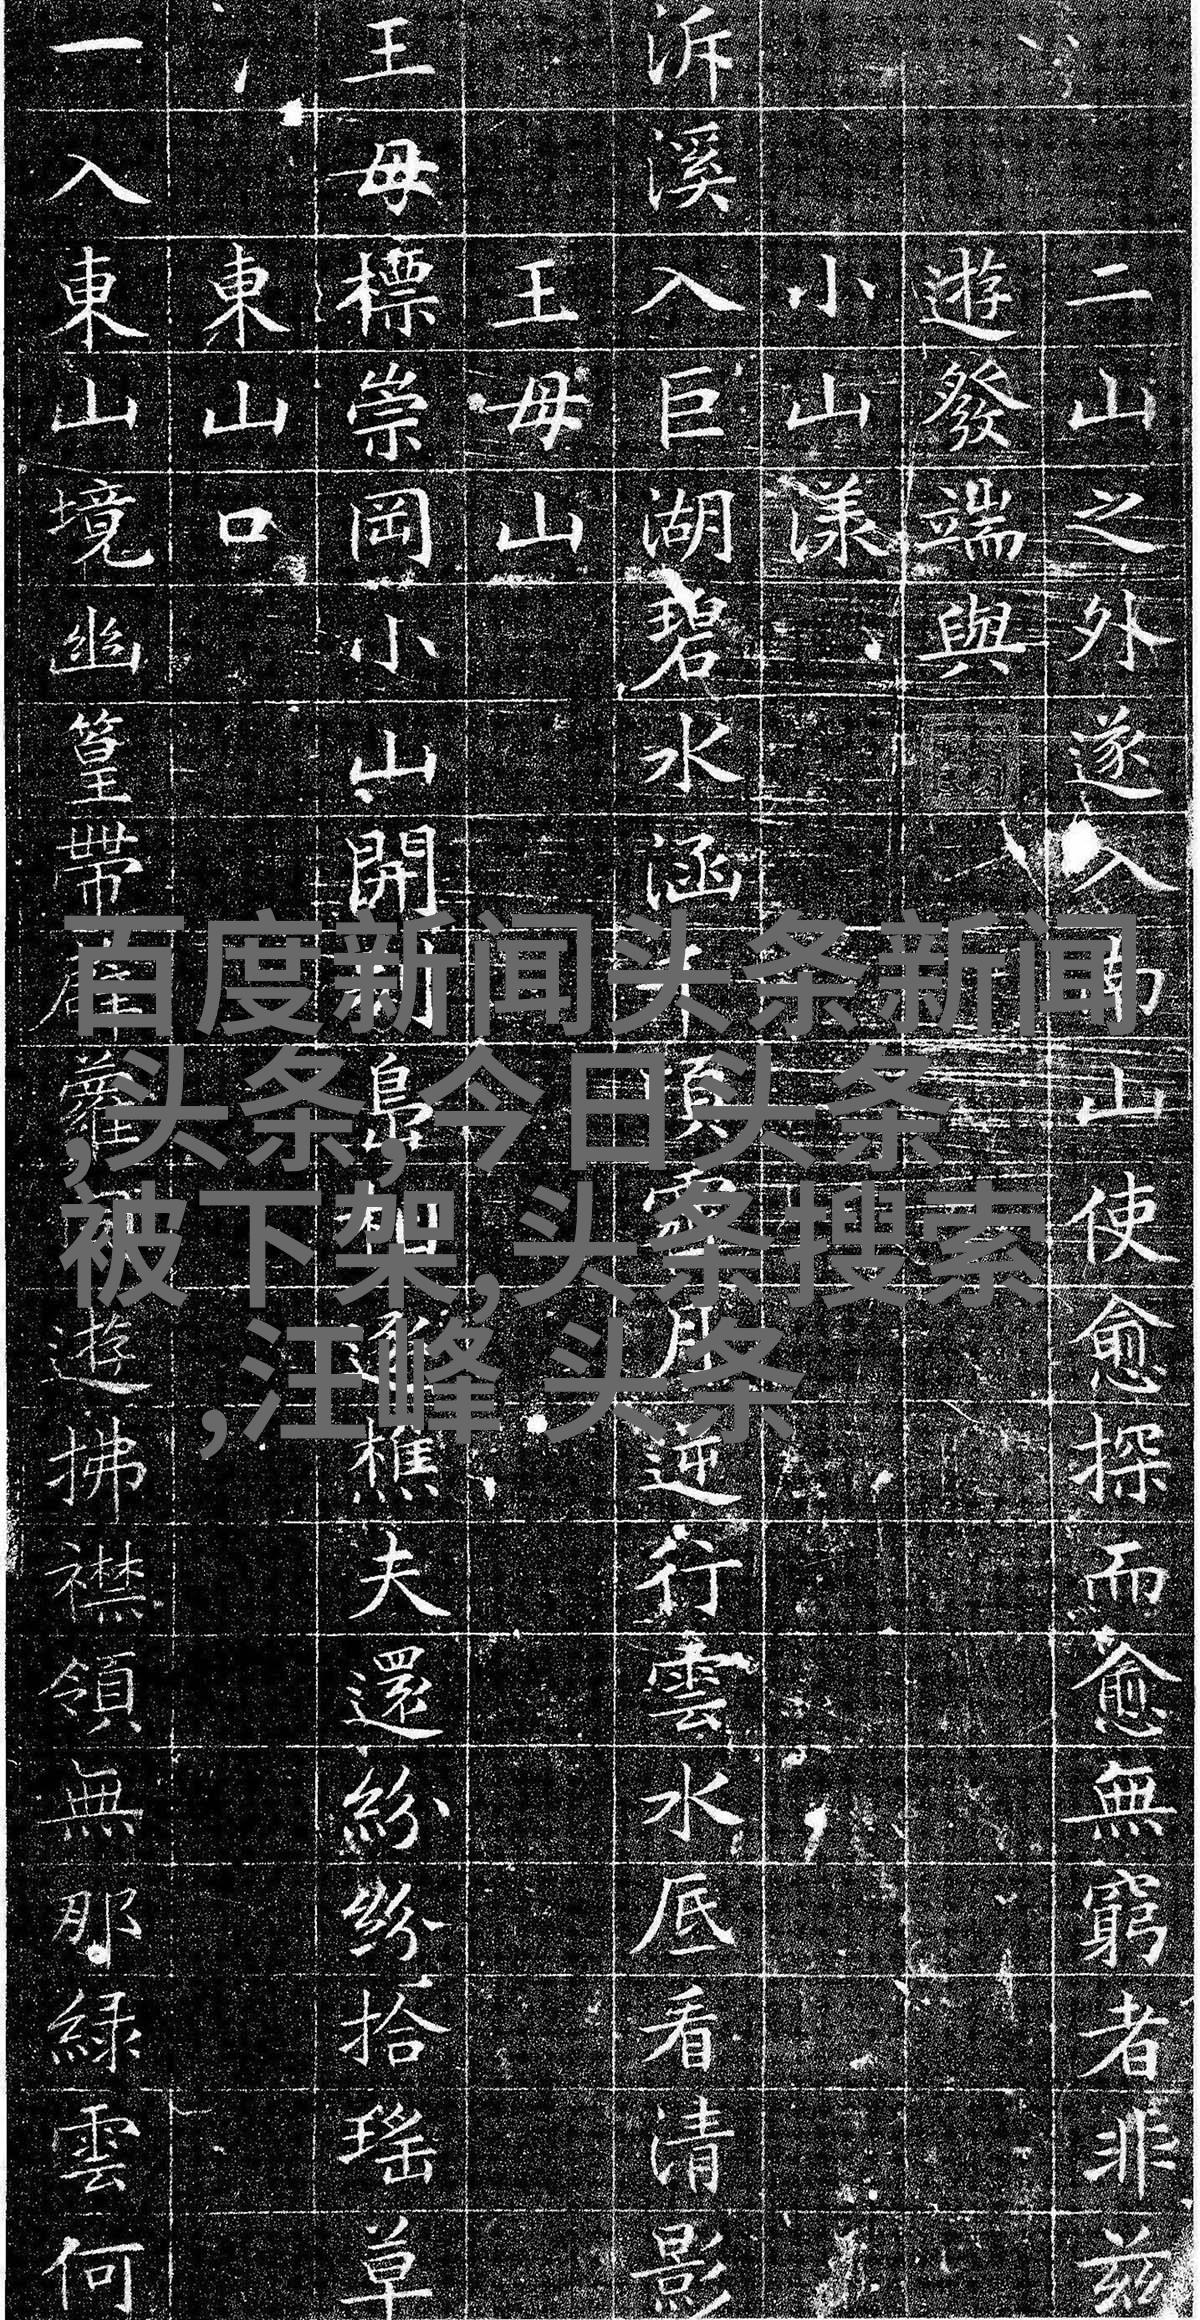 二山之外遂入南山使愈探而愈無窮者非兹
遊發端與
小山漾
泝溪入巨湖碧水涵千頃月逆行雲水底看清影
王毋山
王毋標崇岡小山開別島相逢樵夫還紛紛拾瑤草
東山口
一入東山境幽篁帶薜蘿遊拂襟領無那緑雲何
百度新闻头条新闻
,头条,今日头条
被下架,头条搜索
,汪峰 头条